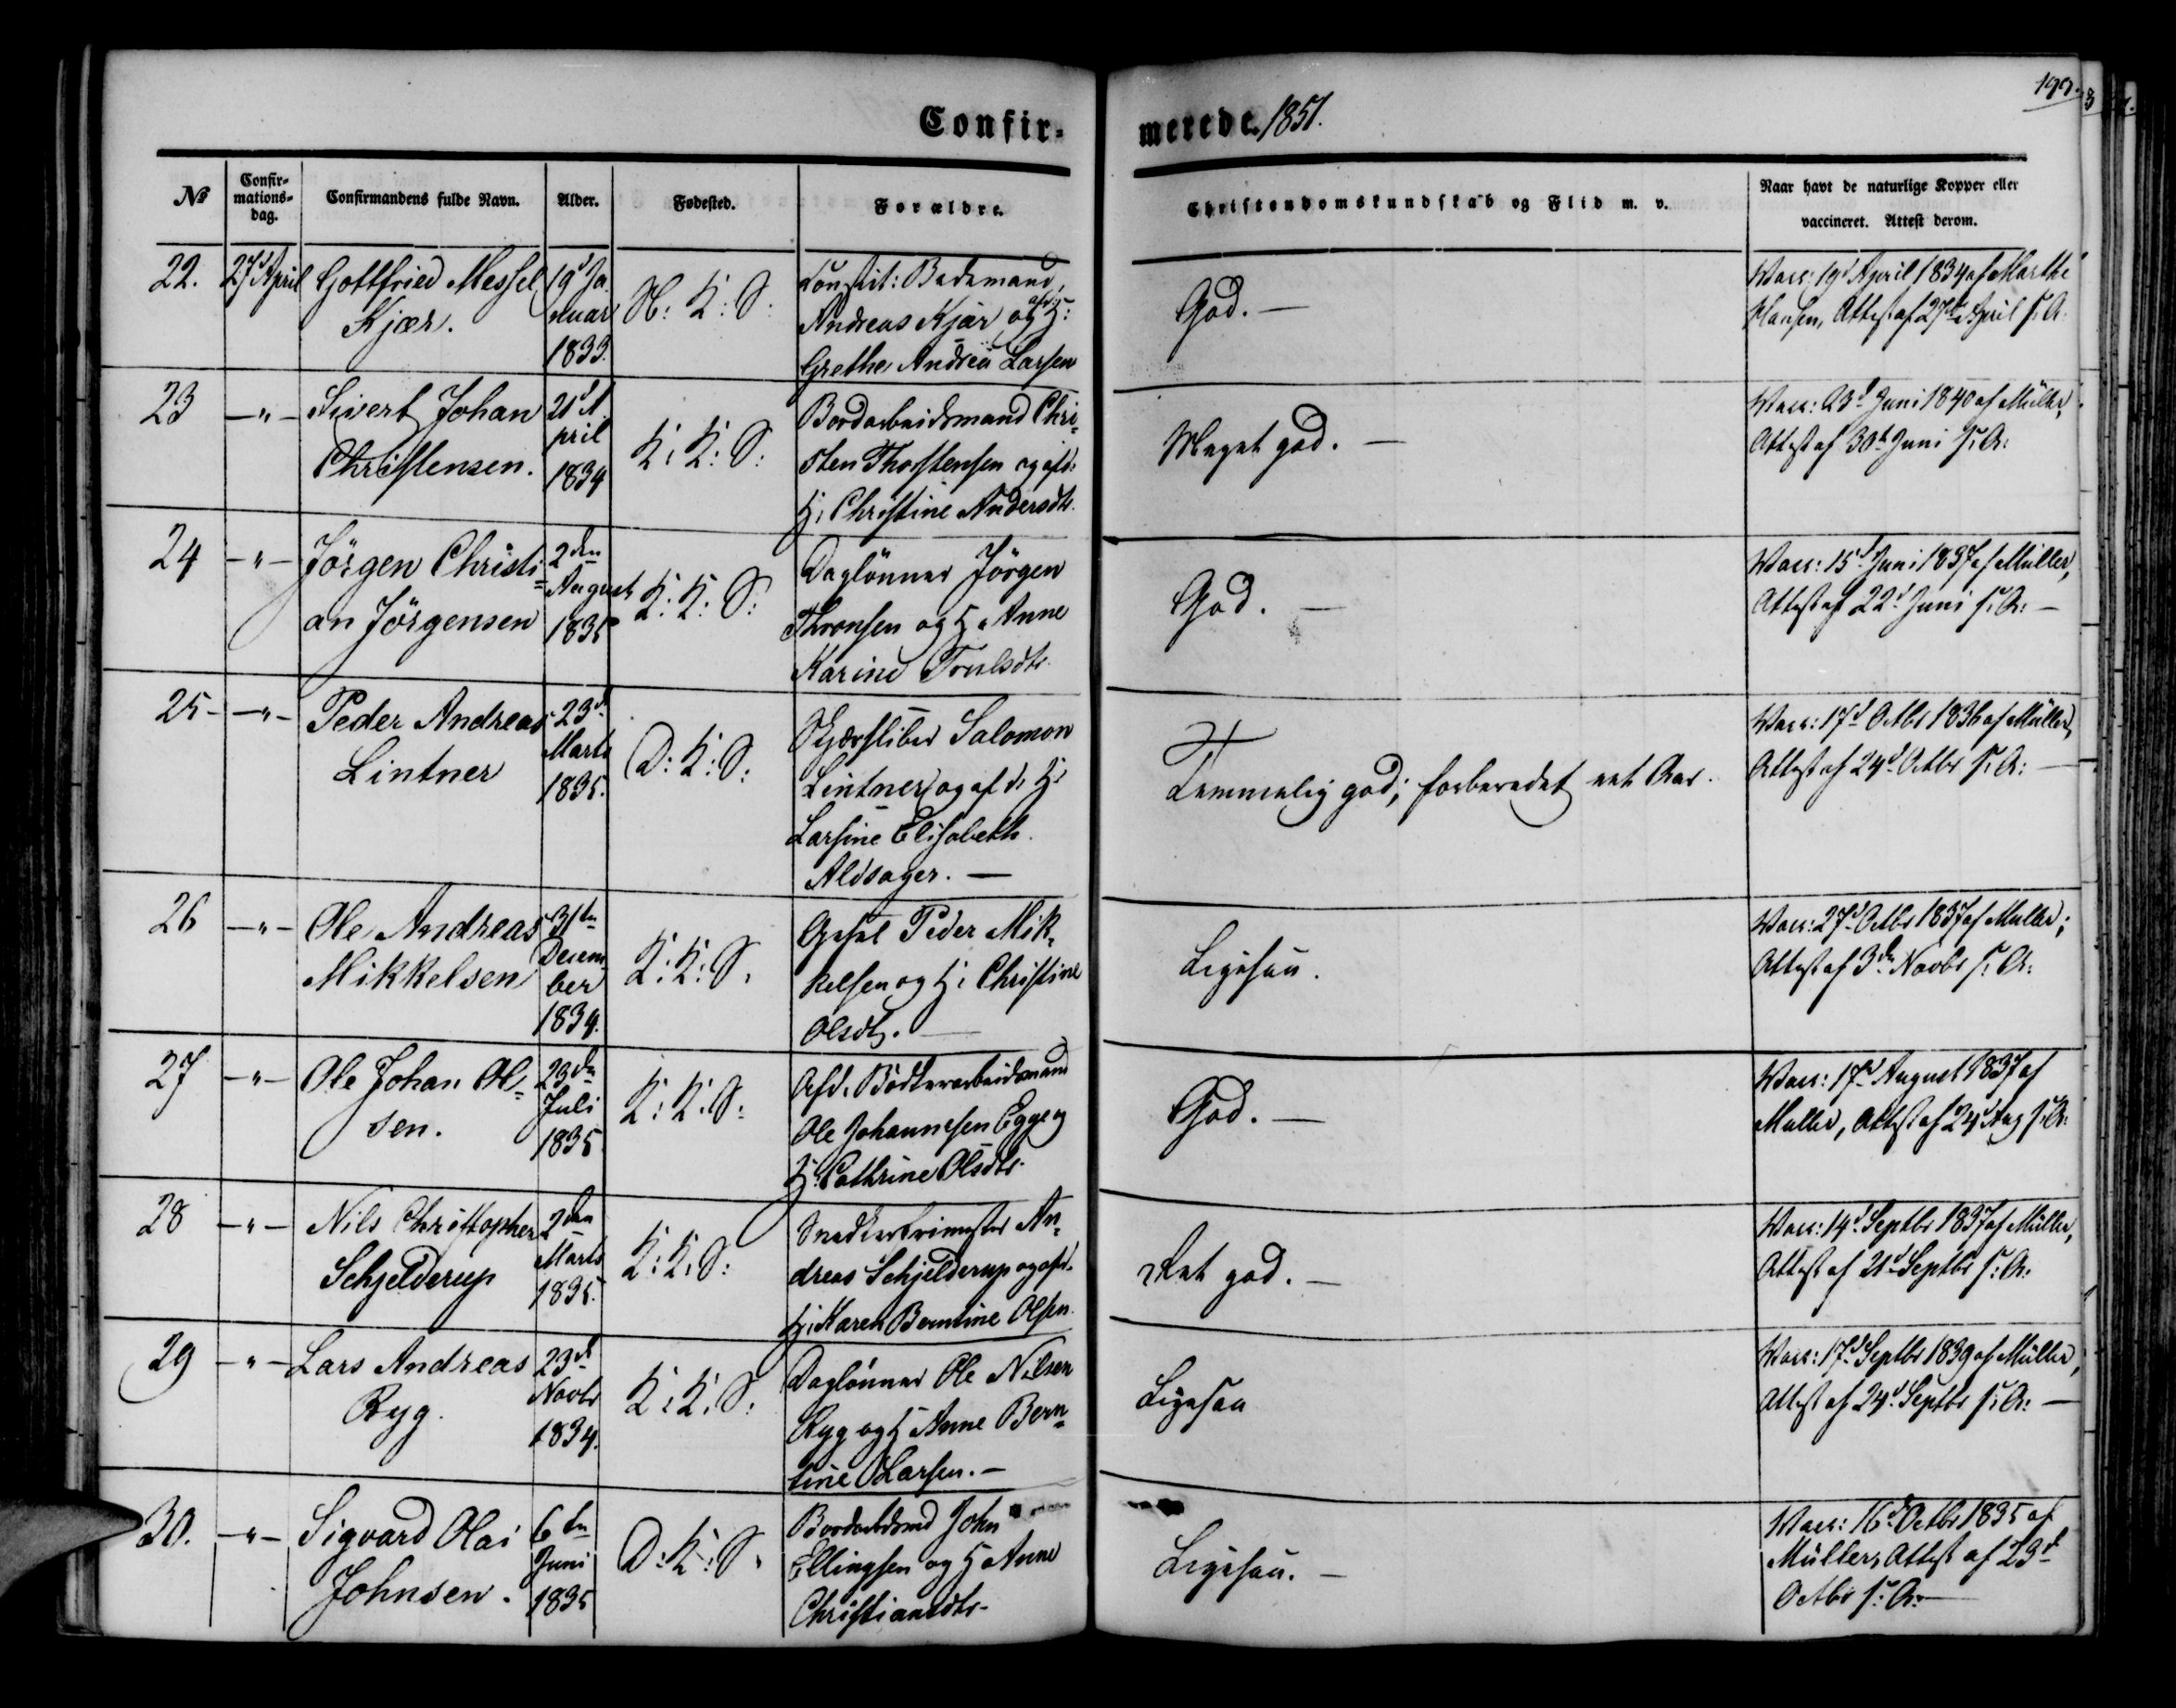 Confirmerede. 1851.
No
Confirmations-
dag.
Confirmandens fulde Navn.
Alder.
Fødested.
Forældre.
Christendomskundskab og Flid m. v.
Naar havt de naturlige Kopper eller
vaccineret. Attest derom.
22.
27d April
Gottfried Messel
Kjær.
19d Ja
nuar
1833.
N: K: S:
Constit: Bademand,
Andreas Kjær og afd: H:
Grethe Andrea Larsen
God. —
Vacc: 19d April 1834 af Marthe
Hansen, Attest af 27de April s. A.
23
— " —
Sivert Johan
Christensen.
21d A
pril
1834
K: K: S:
Bordarbeidsmand Chri-
sten Thostensen og afd:
H: Christine Andersdtr.
Meget god. —
Vacc: 23d Juni 1840 af Müller,
Attest af 30t Juni s: A:
24
— " —
Jörgen Christi-
an Jörgensen
2den
August
1835
K: K: S:
Daglönner Jörgen
Thronsen og H: Anne
Karine Truelsdtr.
God. —
Vacc: 15d Juni 1837 af Müller,
Attest af 22d Juni s. A: —
25 -
— " —
Peder Andreas
Lintner
23d
Marts
1835.
D: K: S:
Skjærsliber Salomon
Lintner og afd: H:
Larsine Elisabeth
Aldsager. —
Temmelig god; forberedet eet Aar.
Vacc: 17d Octbr 1836 af Müller,
Attest af 24d Octbr s. A: —
26
— " —
Ole Andreas
Mikkelsen
31te
Decem
ber
1834.
K: K: S.
Gesel Peder Mik-
kelsen og H: Christine
Olsdtr. —
Ligesaa.
Vacc: 27d Octbr 1837 af Muller;
Attest af 3de Novbr s: A:
27
— " —
Ole Johan Ol-
sen.
23de
Juli
1835
K: K. S:
Afd. Bödkerarbeidsmand
Ole Johannesen Egge og
H: Cathrine Olsdtr.
God. —
Vacc: 17d August 1837 af
Muller, Attest af 24d Aug s. A:
28
— " —
Nils Christopher
Schjelderup
2den
Marts
1835.
K: K. S:
Snedkerfrimester An-
dreas Schjelderup og afd.
H: Karen Berntine Olsen.
Ret god. —
Vacc: 14d Septbr 1837 af Müller,
Attest af 21d Septbr s: A:
29
— " —
Lars Andreas
Ryg.
23d
Novbr
1834.
K: K. S:
Daglönner Ole Nilsen
Ryg og H Anne Bern-
tine Larsen. —
Ligesaa
Vacc: 17d Septbr 1839 af Müller,
Attest af 24d Septbr s: A: —
30.
— " —
Sigvard Olai
Johnsen.
6te
Juni
1835
D: K: S.
Bordarbdsmd John
Ellingsen og H Anne
Christiansdtr.
Ligesaa. —
Vacc: 16d Octbr 1835 af
Müller, Attest af 23d
Octbr s: A: —